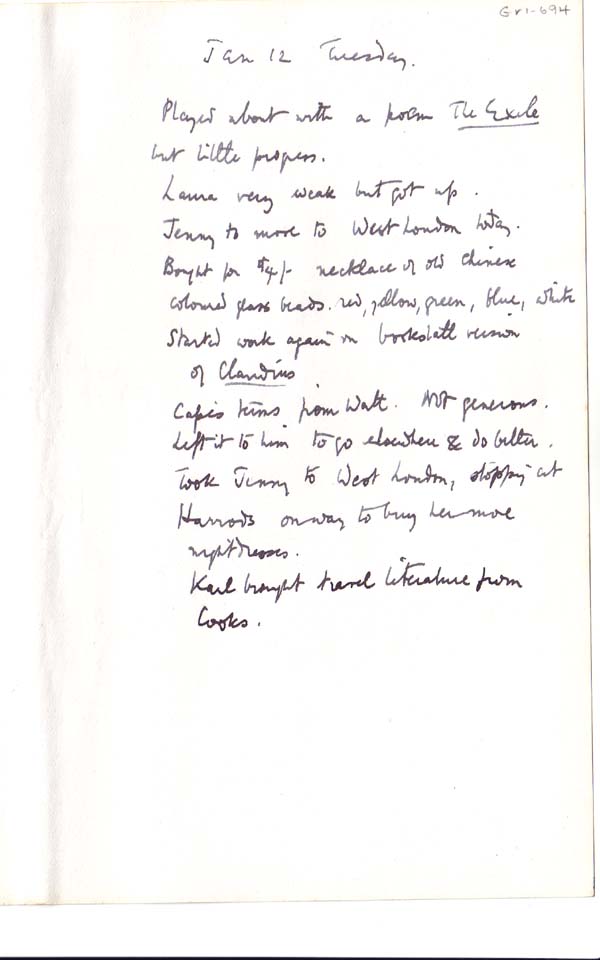 GR1-694
Jan 12 Tuesday.
Played about with a poem The Exile
but little progress.
Laura very weak but got up.
Jenny to move to West London today.
Bought for 4/- necklace of old Chinese
coloured glass beads. red, yellow, green, blue, white
Started work again on version
of Claudius
Cape's terms from Watt. Not generous.
Left it to him to go elsewhere & do better.
Took Jenny to West London, stopping at
Harrods on way to buy her more
nightdresses.
Karl brought travel literature from
Cooks.